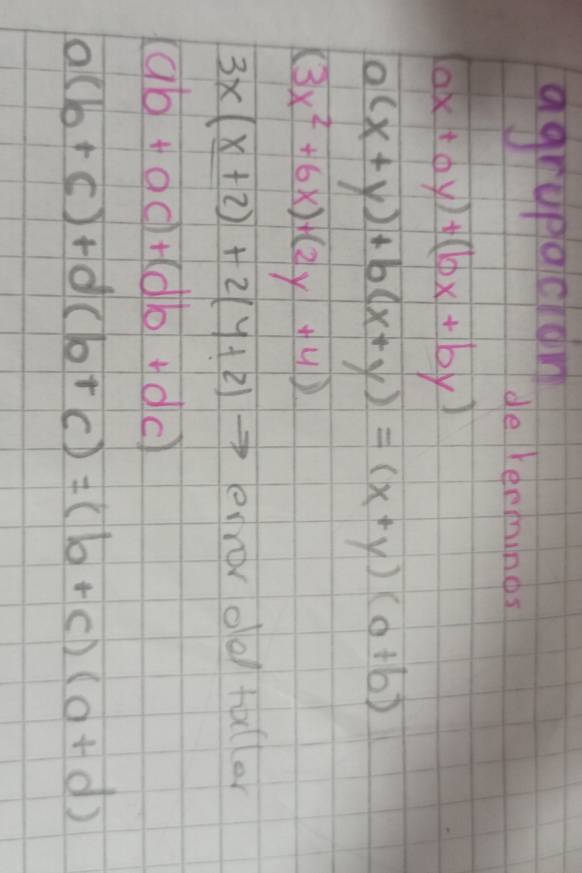 agrupación
de terminos
(ax + ay) + (bx + by)
a(x + y) + b(x + y) = (x + y) (a + b)
(3x² + 6x) + (2y + 4)
3x (x + 2) + 2 (y + 2) → error del taller
(ab + ac) + (db + dc)
a(b + c) + d(b + c) = (b + c) (a + d)